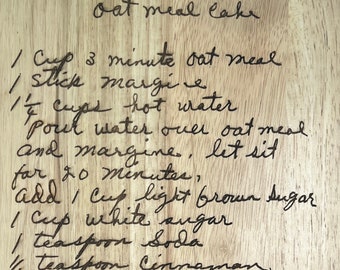 oat meal cake
1 Cup 3 minute oat meal
1 Stick margine
1 1/4 cups hot water
Pour water over oatmeal
and margine, let sit
for 20 minutes,
add 1 Cup light brown sugar
1 Cup white sugar
1 teaspoon Soda
teaspoon Cinnaman